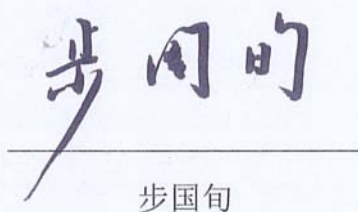 步国旬
步国旬